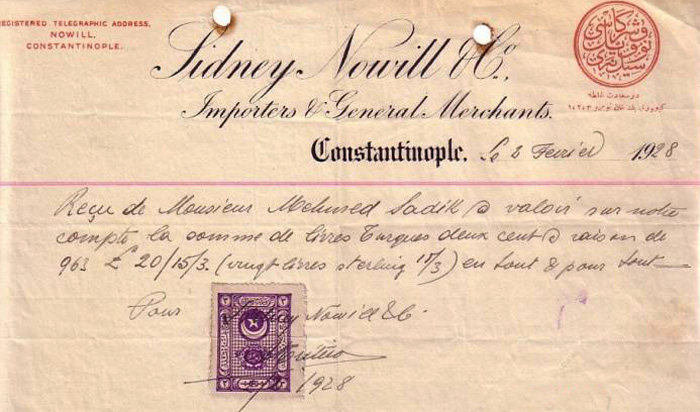 REGISTERED TELEGRAPHIC ADDRESS,
NOWILL,
CONSTANTINOPLE.
Sidney Nowill & Co.,
Importers & General Merchants.
Constantinople, le 2 Fevrier 1928
در سعادت غلطه
Reçu de Monsieur Mehmed Sadik à valoir sur notre
compte la somme de livres Turques deux cent à raison de
963 £ 20/15/3. (vingt livres sterling 15/3) en tout & pour tout
Pour Sidney Nowill & Co.
1928